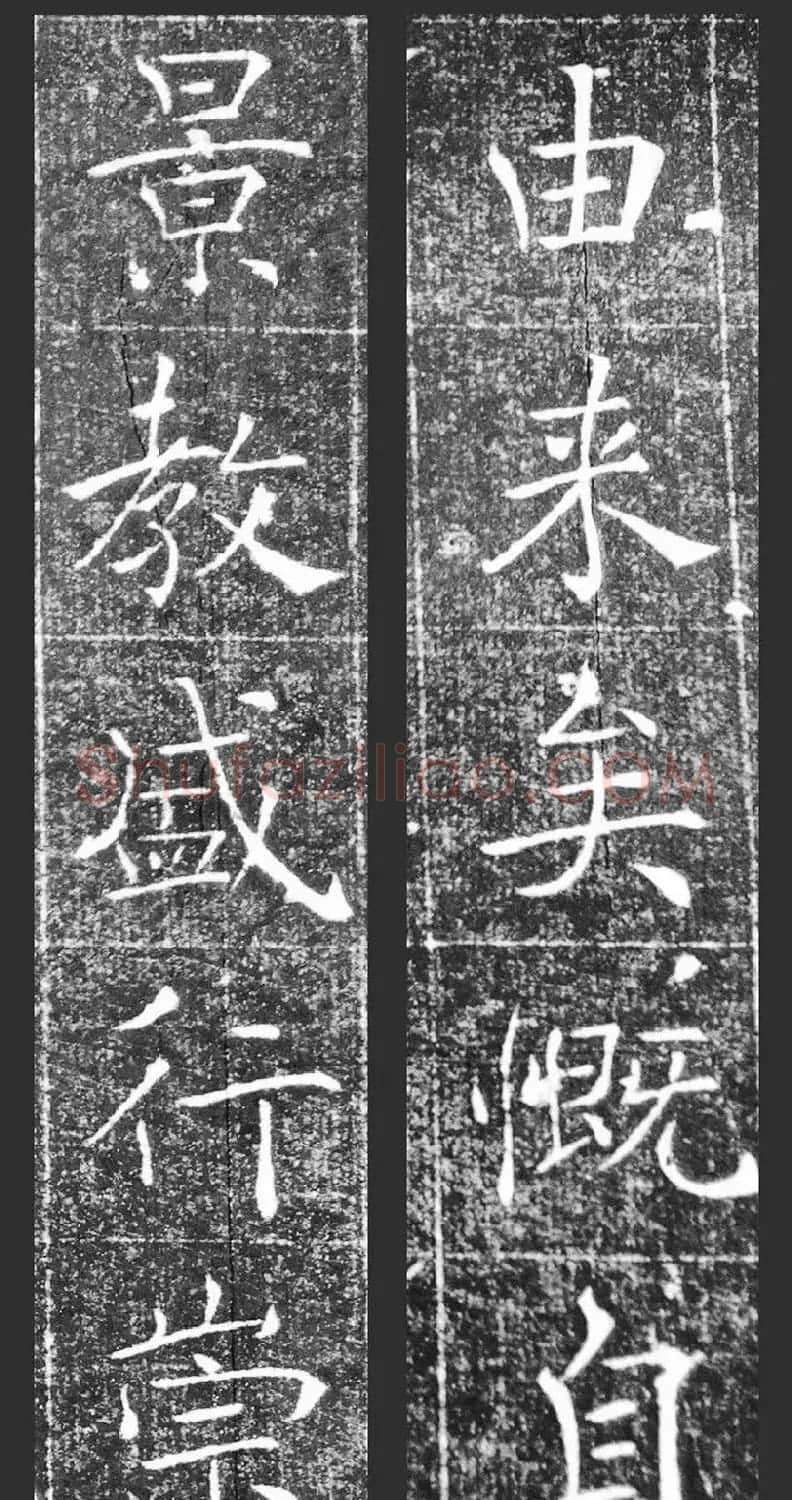 由来矣慨自
景教盛行崇
Shufaziliao.COM